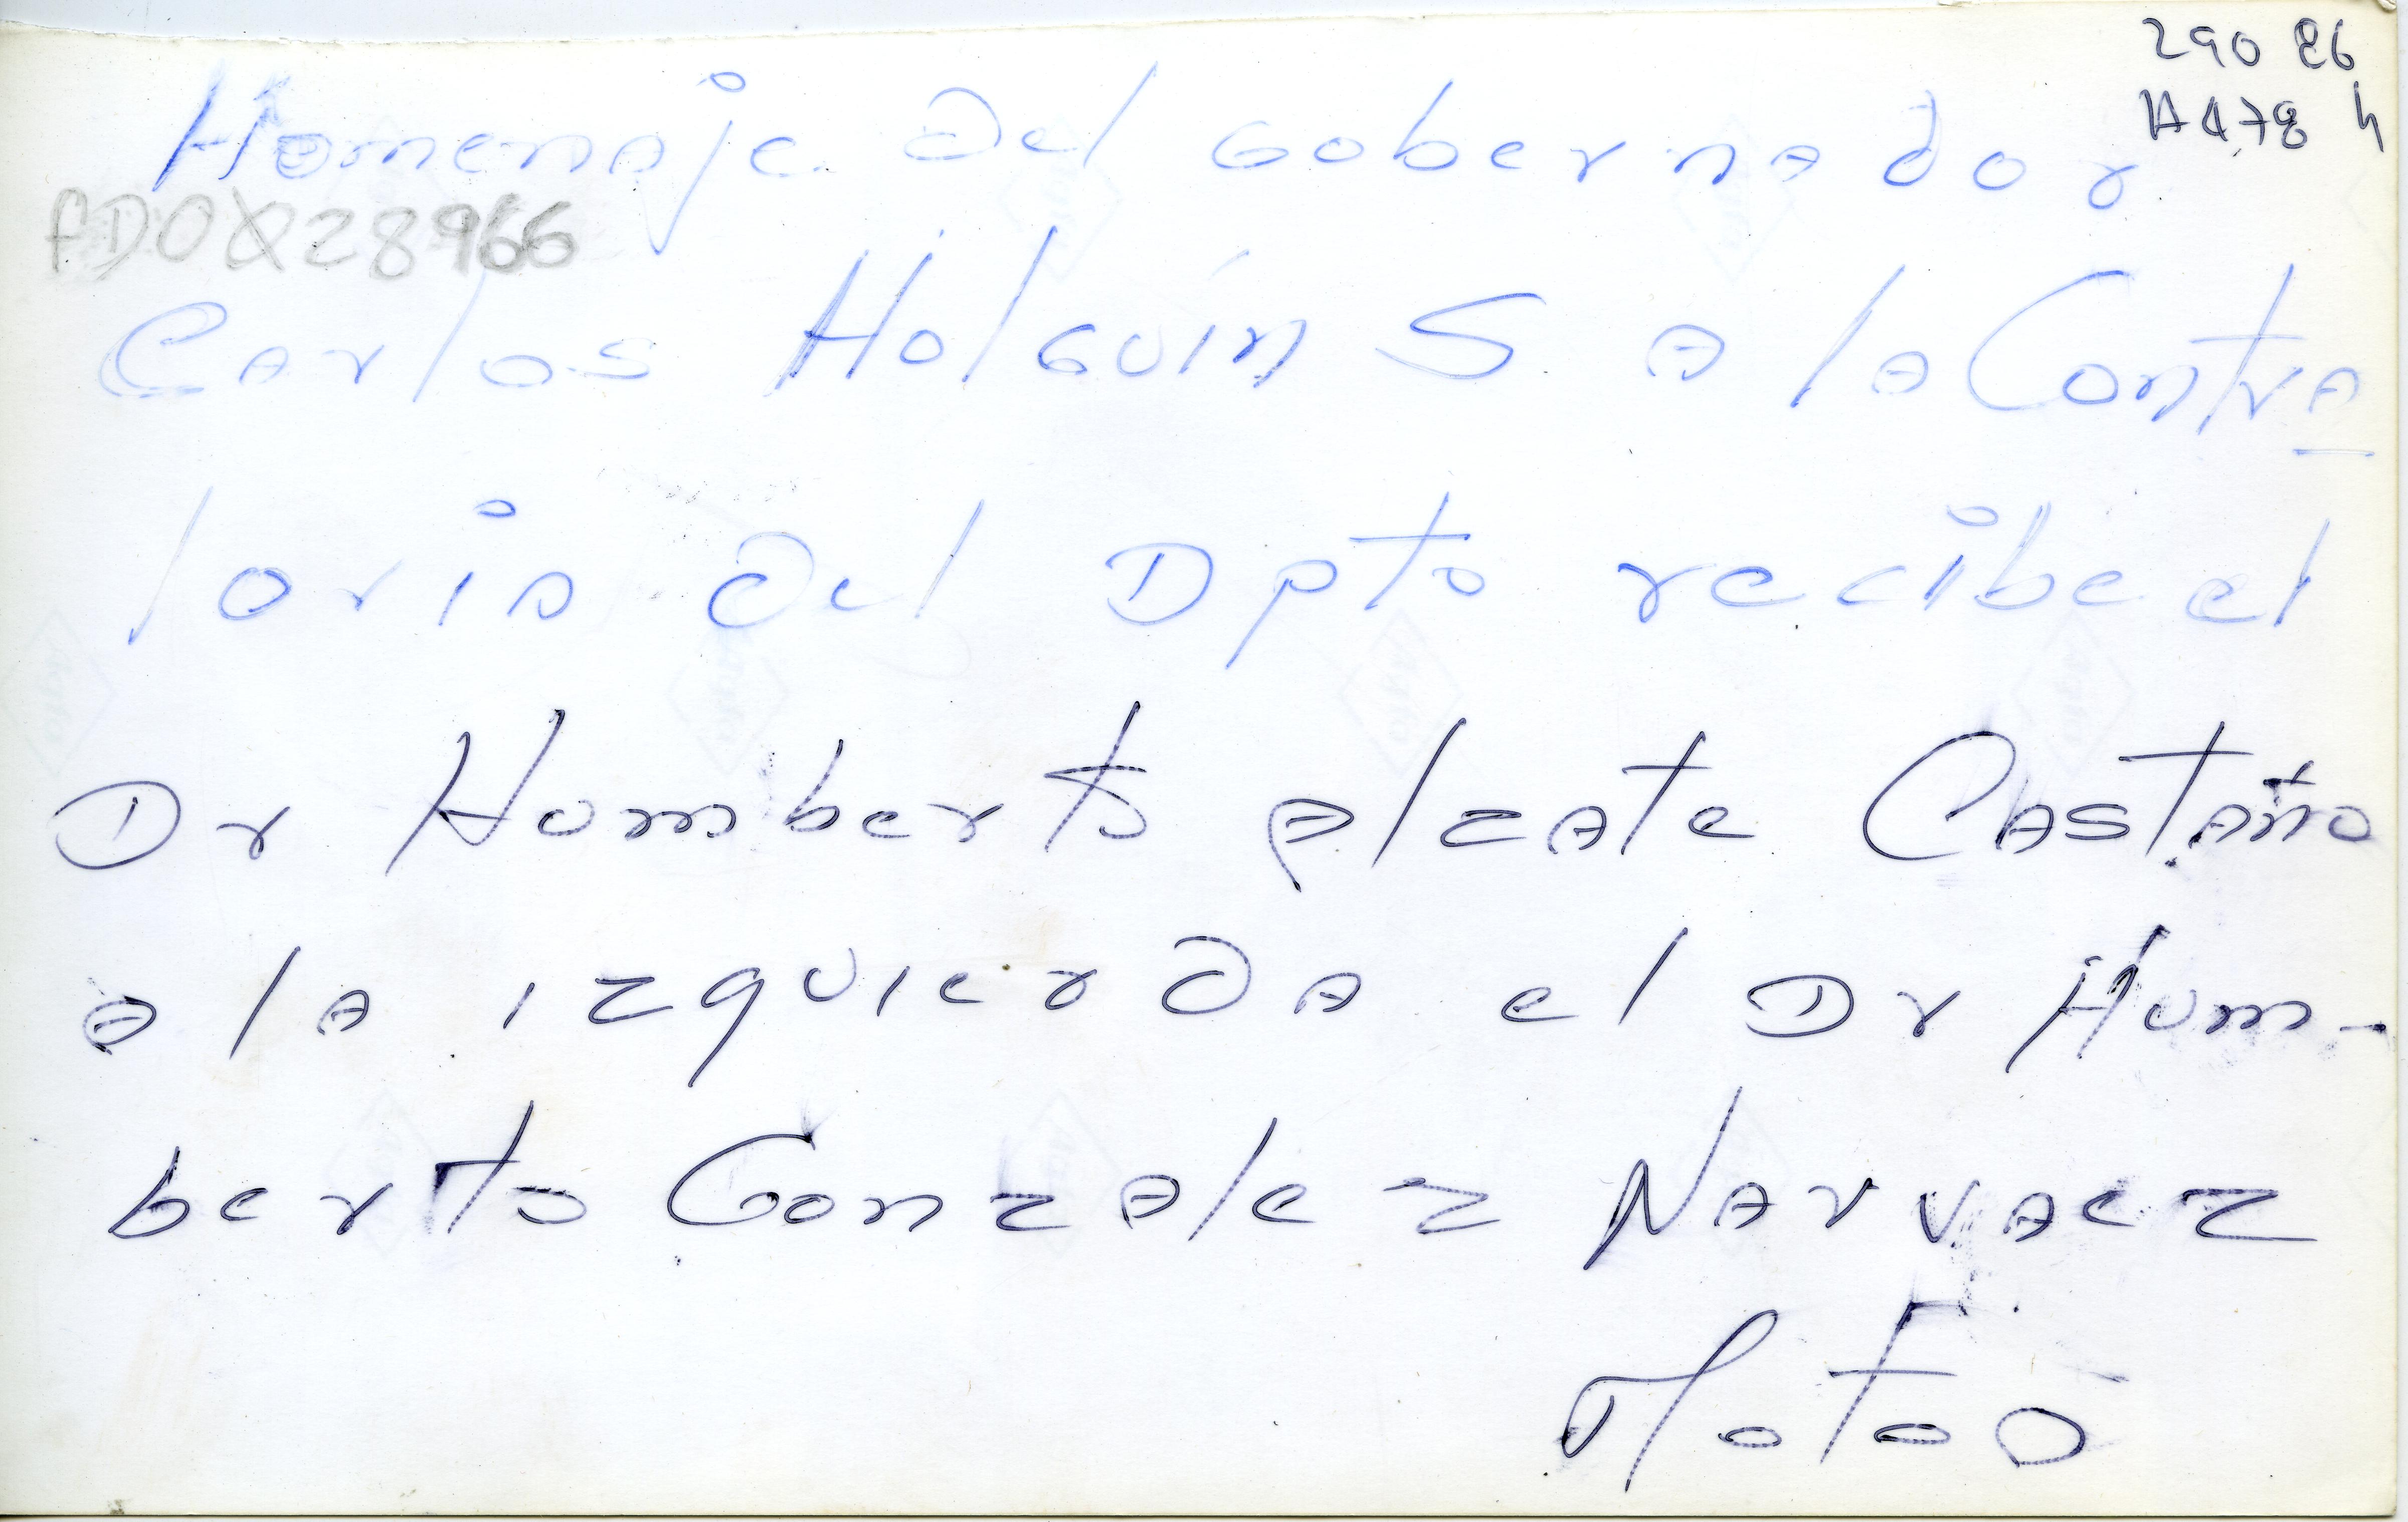 290 86
A478 h
Homenaje del Gobernador
FD0028966
Carlos Holguín S a la Contra
loria del Dpto recibe el
Dr Humberto alzate Castaño
a la izquierda el Dr Hum-
berto Gonzalez Narvaez